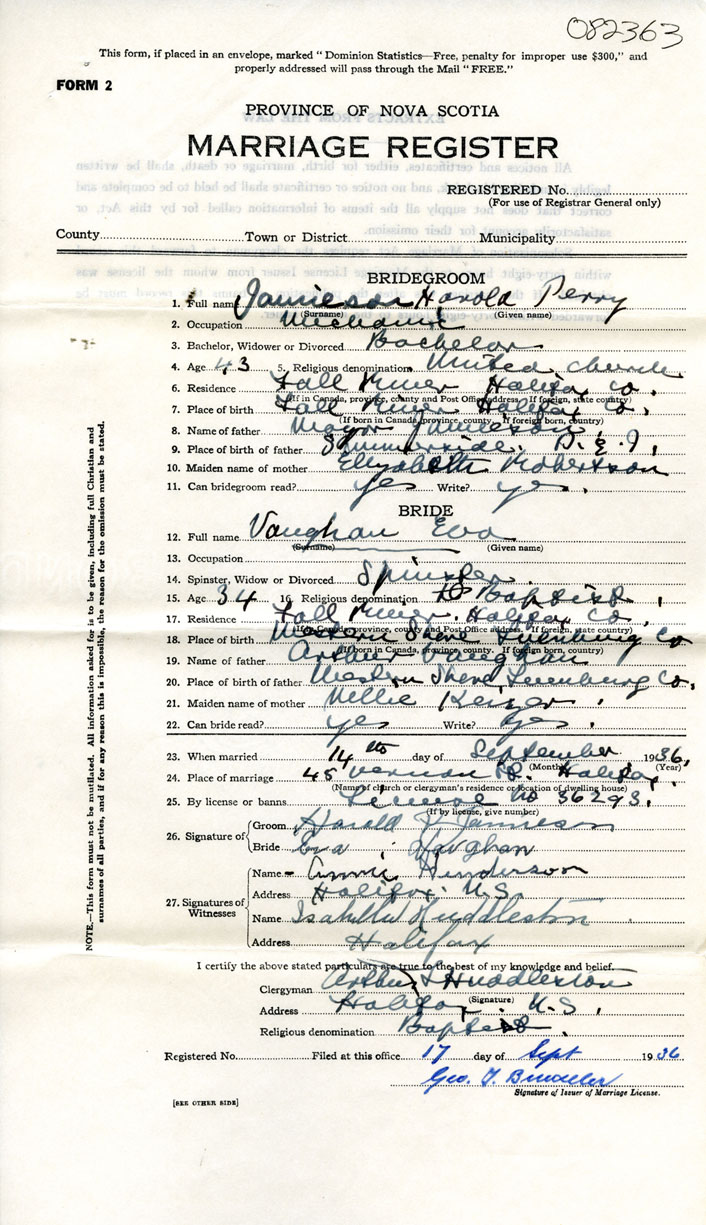 082363
This form, if placed in an envelope, marked "Dominion Statistics—Free, penalty for improper use $300," and
properly addressed will pass through the Mail "FREE."
FORM 2
PROVINCE OF NOVA SCOTIA
MARRIAGE REGISTER
REGISTERED No.
(For use of Registrar General only)
County Town or District Municipality
BRIDEGROOM
1. Full name Jamieson Harold Perry
(Surname) (Given name)
2. Occupation Mechanic
3. Bachelor, Widower or Divorced Bachelor
4. Age 43 5. Religious denomination United Church
6. Residence Fall River Halifax Co.
(If in Canada, province, county and Post Office address. If foreign, state country)
7. Place of birth Fall River Halifax Co.
(If born in Canada, province, county. If foreign born, country)
8. Name of father Jamieson
9. Place of birth of father Summerside. P.E.I.
10. Maiden name of mother Elizabeth Robertson
11. Can bridegroom read? yes Write? yes.
BRIDE
12. Full name Vaughan Eva
(Surname) (Given name)
13. Occupation
14. Spinster, Widow or Divorced Spinster
15. Age 34 16. Religious denomination Baptist
17. Residence Fall River. Halifax Co.
(If in Canada, province, county and Post Office address. If foreign, country)
18. Place of birth Western Shore Lunenburg Co
(If born in Canada, province, county. If foreign born, country)
19. Name of father Arthur Vaughan
20. Place of birth of father Western Shore Lunenburg Co.
21. Maiden name of mother Nellie Keizer
22. Can bride read? yes Write? yes.
23. When married 14th day of September 1936.
(Month) (Year)
24. Place of marriage 45 Vernon St. Halifax.
(Name of church or clergyman's residence or location of dwelling house)
25. By license or banns License No 36293.
(If by license, give number)
26. Signature of Groom Harold P. Jamieson
Bride Eva Vaughan
27. Signatures of Witnesses Name Annie Henderson
Address Halifax. N.S.
Name Isabella Huddleston
Address Halifax
I certify the above stated particulars are true to the best of my knowledge and belief.
Clergyman Arthur Huddleston
(Signature)
Address Halifax. N.S.
Religious denomination Baptist.
Registered No. Filed at this office 17 day of Sept 1936
Geo. T.
Signature of Issuer of Marriage License.
[SEE OTHER SIDE]
NOTE.—This form must not be mutilated. All information asked for is to be given, including full Christian and
surnames of all parties, and if for any reason this is impossible, the reason for the omission must be stated.